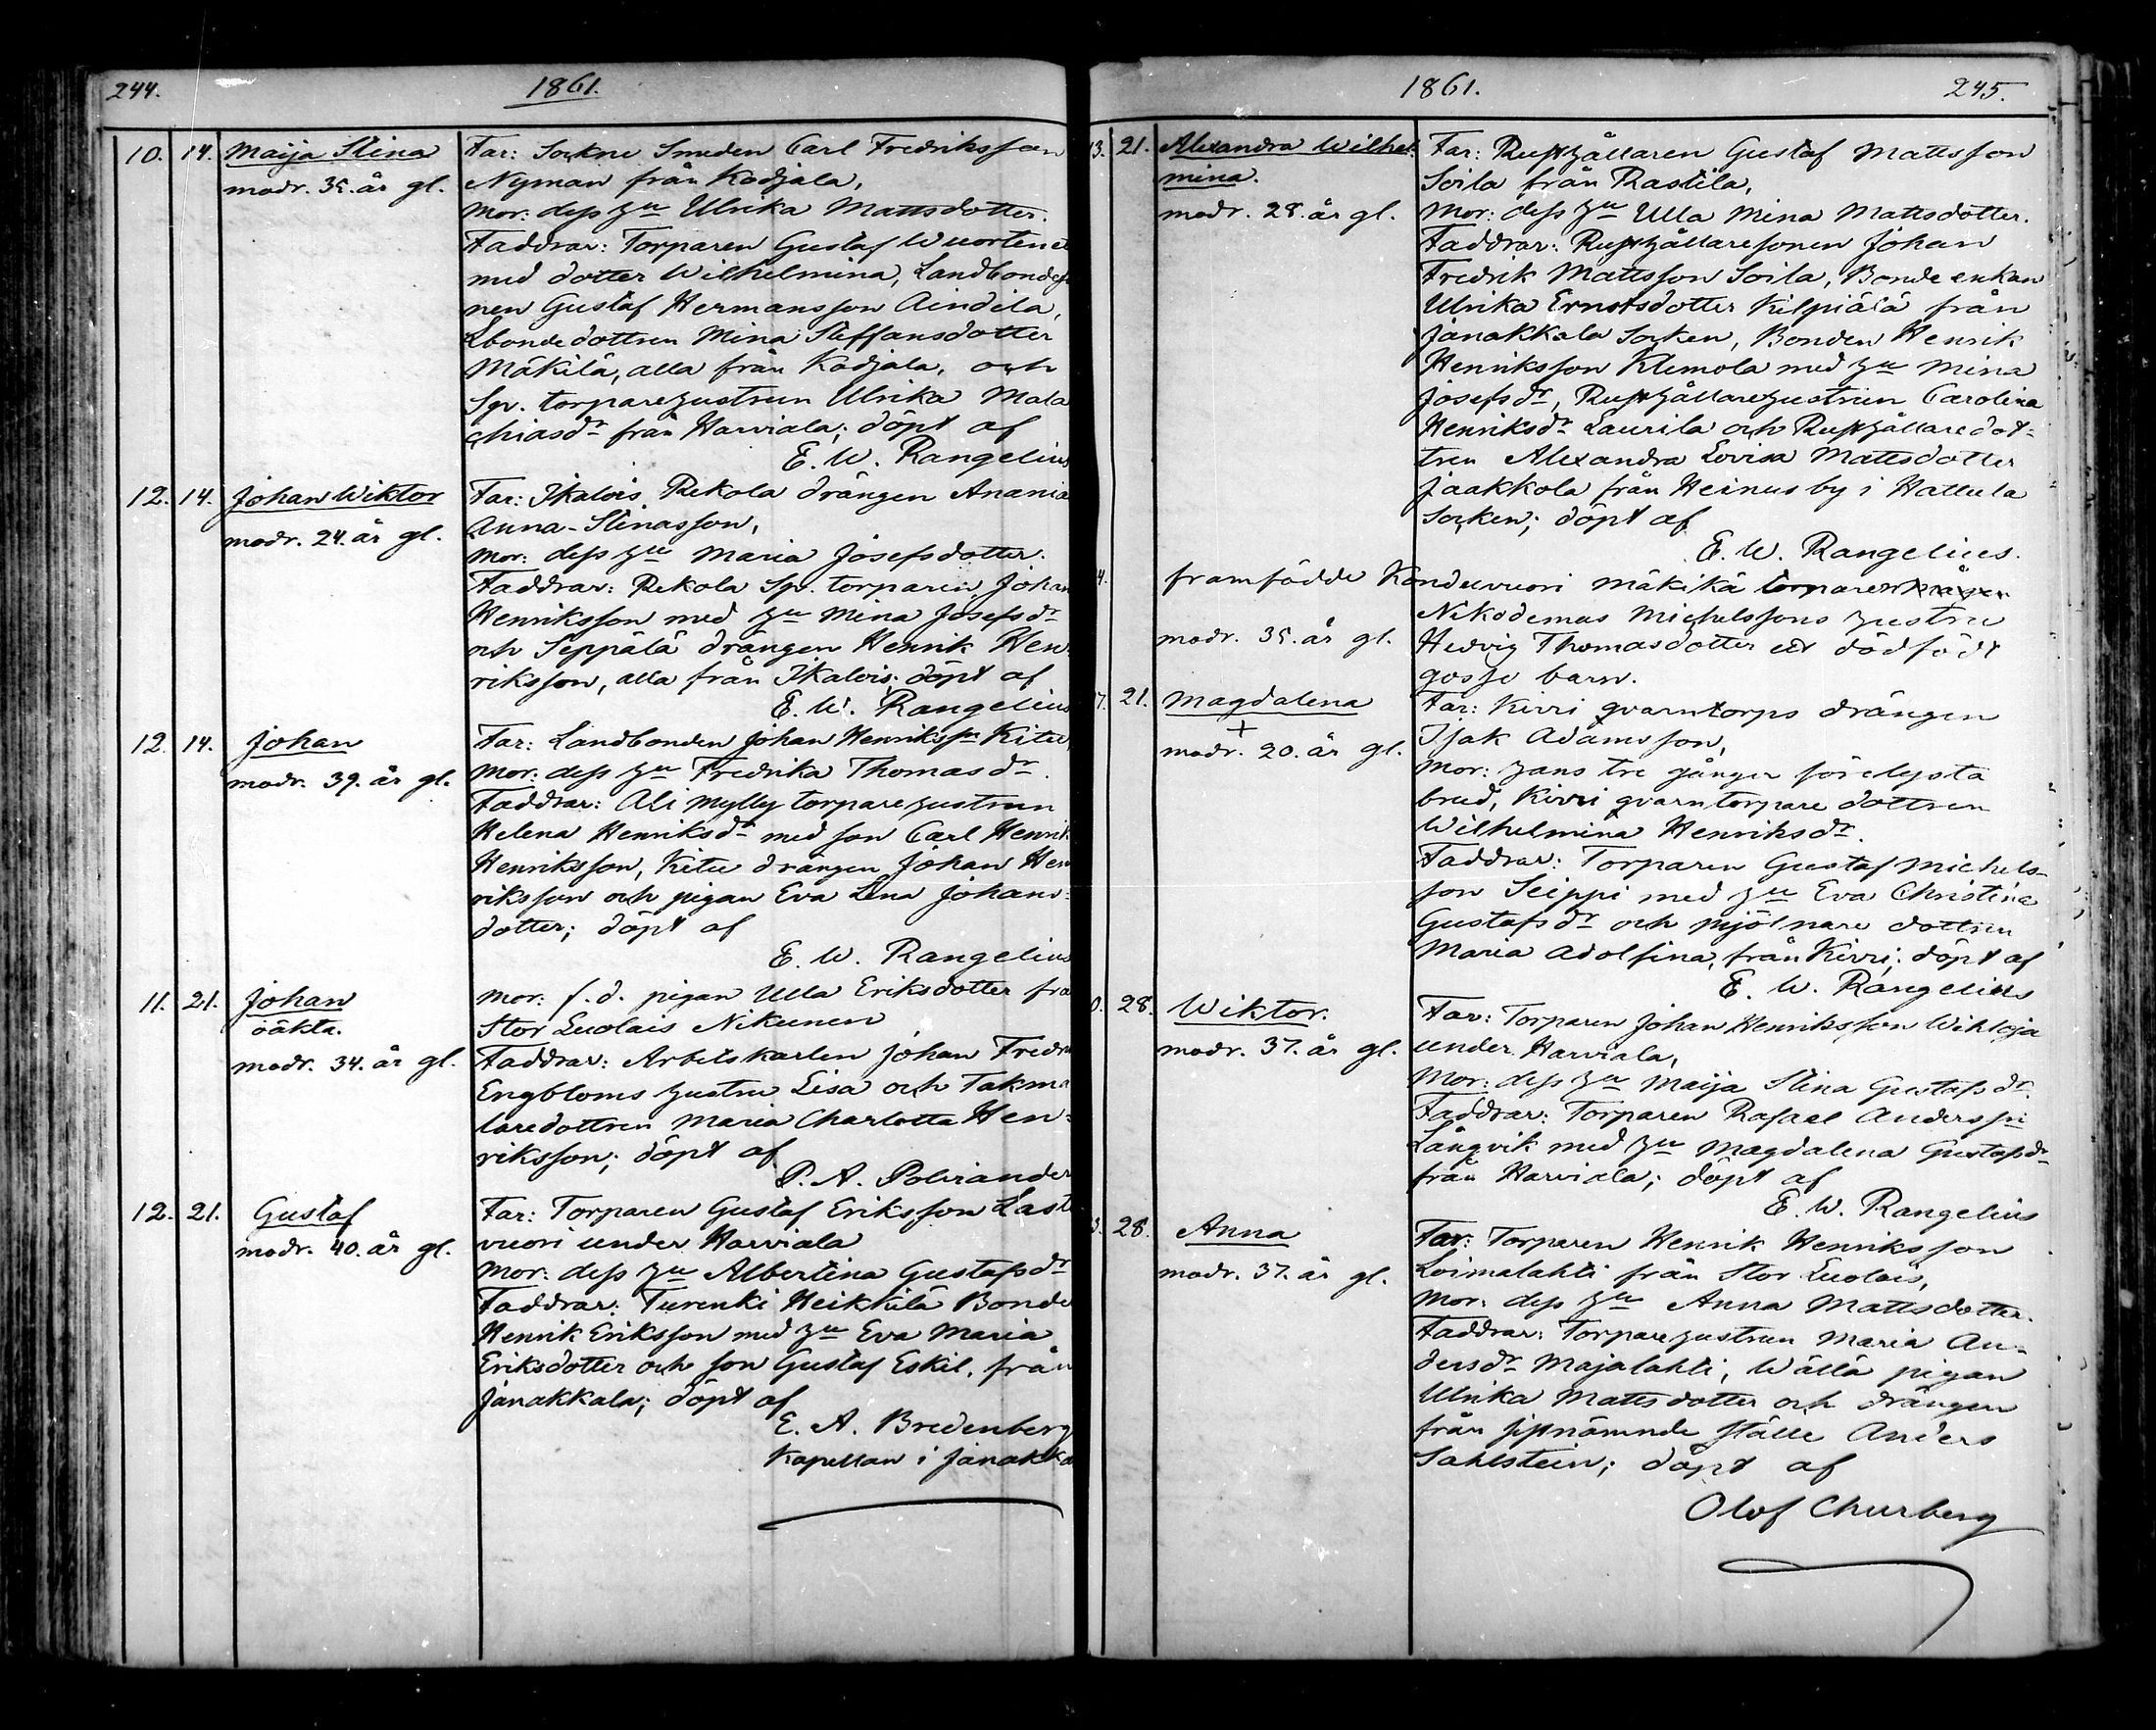 244.
1861.
10. 14. Maija Stina
modr. 35. år gl.
Far: Sockne Smeden Carl Fredriksson
Nyman från Kodjala,
Mor: dess hu Ulrika Mattsdotter.
Faddrar: Torparen Gustaf Wuortenet
med dotter Wilhelmina, Landbondeso
nen Gustaf Hermansson Aindila,
Lbondedottren Mina Steffansdotter
Mäkilä, alla från Kodjala, och
Spr. torparehustrun Ulrika Mala
chiasdr från Harviala; döpt af
E. W. Rangelius
12. 14. Johan Wiktor
modr. 24. år gl.
Far: Ikalois Rekola drängen Anania
Anna-Stinasson,
Mor: dess hu Maria Josefsdotter.
Faddrar: Rekola Sp. torparen Johan
Henriksson med hu Mina Josefsdr
och Seppälä drängen Henrik Hen
riksson, alla från Ikalois; döpt af
E. W. Rangelius
12. 14. Johan
modr. 39. år gl.
Far: Landbonden Johan Henrikssn Kitu,
Mor: dess hu Fredrika Thomasdr.
Faddrar: Ali mylly torparehustrun
Helena Henriksdr med son Carl Henrik
Henriksson, Kitu drängen Johan Hen
riksson och pigan Eva Lena Johans-
dotter; döpt af
E. W. Rangelius
11. 21. Johan
oäkta.
modr. 34. år gl.
Mor: f.d. pigan Ulla Eriksdotter frå
Stor Luolais Nikunen
Faddrar: Arbetskarlen Johan Fredr
Engbloms hustru Lisa och Takma
laredottren Maria Charlotta Hen-
riksson; döpt af
P. A. Polviander
12. 21. Gustaf
modr. 40. år gl.
Far: Torparen Gustaf Eriksson Last
vuori under Harviala
Mor: dess hu Albertina Gustafsdr
Faddrar: Turenki Heikkilä Bonde
Henrik Eriksson med hu Eva Maria
Eriksdotter och son Gustaf Eskil, från
Janakkala; döpt af
E. A. Bredenberg
Kapellan i Janakka
1861.
245.
3. 21. Alexandra Wilhel-
mina.
modr. 28. år gl.
Far: Rusthållaren Gustaf Mattsson
Soila från Rastila,
Mor: dess hu Ulla Mina Mattsdotter.
Faddrar: Rusthållaresonen Johan
Fredrik Mattsson Soila, Bondeenkan
Ulrika Ernstsdotter Kilpiälä från
Janakkala Socken, Bonden Henrik
Henriksson Klemola med hu Mina
Josefsdr, Rusthållarehustrun Carolina
Henriksdr Laurila och Rusthållaredot-
tren Alexandra Lovisa Mattsdotter
Jaakkola från Heinus by i Hattula
Socken; döpt af
E. W. Rangelius.
4. framfödde Kanduvuori Mäkikä torparen
modr. 35. år gl.
Nikodemus Michelssons hustru
Hedvig Thomasdotter ett dödfödt
gosse barn.
7. 21. Magdalena
+
modr. 20. år gl.
Far: Kirri qvarntorps drängen
Isak Adamsson,
Mor: hans tre gånger förelysta
brud, Kirri qvarntorpare dottren
Wilhelmina Henriksdr.
Faddrar: Torparen Gustaf Michels-
son Seippi med hu Eva Christina
Gustafsdr och mjölnare dottren
Maria Adolfina, från Kirri; döpt af
E. W. Rangelius
0. 28. Wiktor.
modr. 37. år gl.
Far: Torparen Johan Henriksson Wihloja
under Harviala,
Mor: dess hu Maija Stina Gustafsdr.
Faddrar: Torparen Rafael Anderssn
Långvik med hu Magdalena Gustafsdr
från Harviala; döpt af
E. W. Rangelius
3. 28. Anna
modr. 37. år gl.
Far: Torparen Henrik Henriksson
Loimalahti från Stor Luolais,
Mor: dess hu Anna Mattsdotter.
Faddrar: Torparehustrun Maria An-
dersdr Majalahti, Wällä pigan
Ulrika Mattsdotter och drängen
från sistnämnde ställe Anders
Sahlstein; döpt af
Olof Churberg